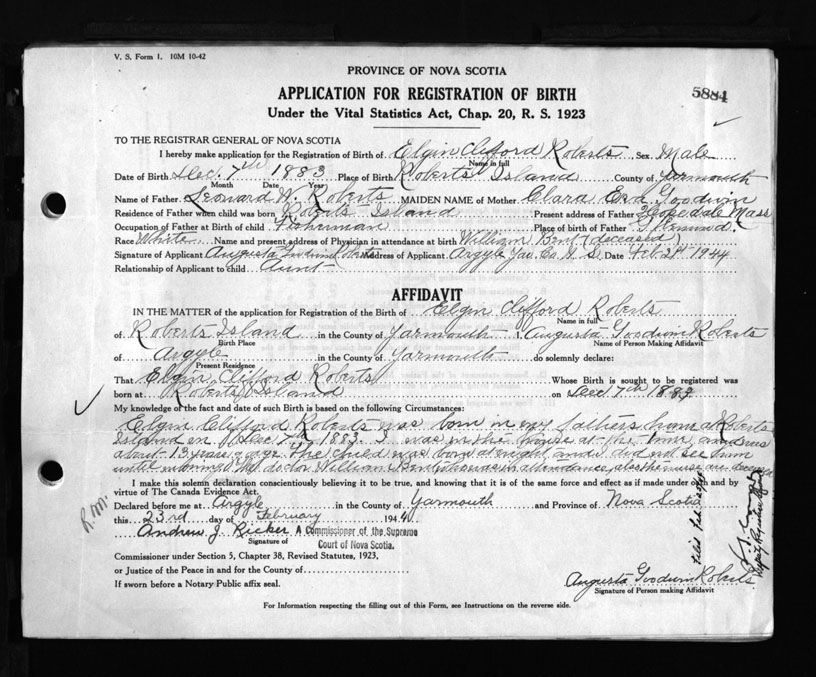 V. S. Form 1. 10M 10-42
PROVINCE OF NOVA SCOTIA
APPLICATION FOR REGISTRATION OF BIRTH
5884
Under the Vital Statistics Act, Chap. 20, R. S. 1923
TO THE REGISTRAR GENERAL OF NOVA SCOTIA
I hereby make application for the Registration of Birth of Elgin Clifford Roberts, Sex Male
Name in full
Date of Birth Dec. 7th 1883 Place of Birth Roberts Island County of Yarmouth
Month Date Year
Name of Father Leonard W. Roberts MAIDEN NAME of Mother Clara Goodwin
Residence of Father when child was born Roberts Island Present address of Father Hopedale Mass
Occupation of Father at Birth of child Fisherman Place of birth of Father
Race White Name and present address of Physician in attendance at birth William Bent (deceased)
Signature of Applicant Augusta Goodwin Roberts Address of Applicant Argyle Yar. Co. N. S. Date Feb 1944
Relationship of Applicant to child Aunt
AFFIDAVIT
IN THE MATTER of the application for Registration of the Birth of Elgin Clifford Roberts
Name in full
of Roberts Island in the County of Yarmouth I, Augusta Goodwin Roberts
Birth Place Name of Person Making Affidavit
of Argyle in the County of Yarmouth do solemnly declare:
Present Residence
That Elgin Clifford Roberts Whose Birth is sought to be registered was
born at Roberts Island on Dec 7th 1883
My knowledge of the fact and date of such Birth is based on the following Circumstances:
Elgin Clifford Roberts was born in my fathers home at Roberts
Island on Dec 7th 1883. I was in the house at the time, and was
about 13 years of age. The child was born at night and I did not see him
until informed. The doctor William Bent who was in attendance, also the nurse are deceased
I make this solemn declaration conscientiously believing it to be true, and knowing that it is of the same force and effect as if made under oath and by
virtue of The Canada Evidence Act.
R.M.
Declared before me at Argyle in the County of Yarmouth and Province of Nova Scotia
this 23rd day of February 1944
Andrew J. Ricker A Commissioner of the Supreme
Signature of Court of Nova Scotia.
Commissioner under Section 5, Chapter 38, Revised Statutes, 1923,
or Justice of the Peace in and for the County of
If sworn before a Notary Public affix seal.
Augusta Goodwin Roberts
Signature of Person making Affidavit
For Information respecting the filling out of this Form, see Instructions on the reverse side.